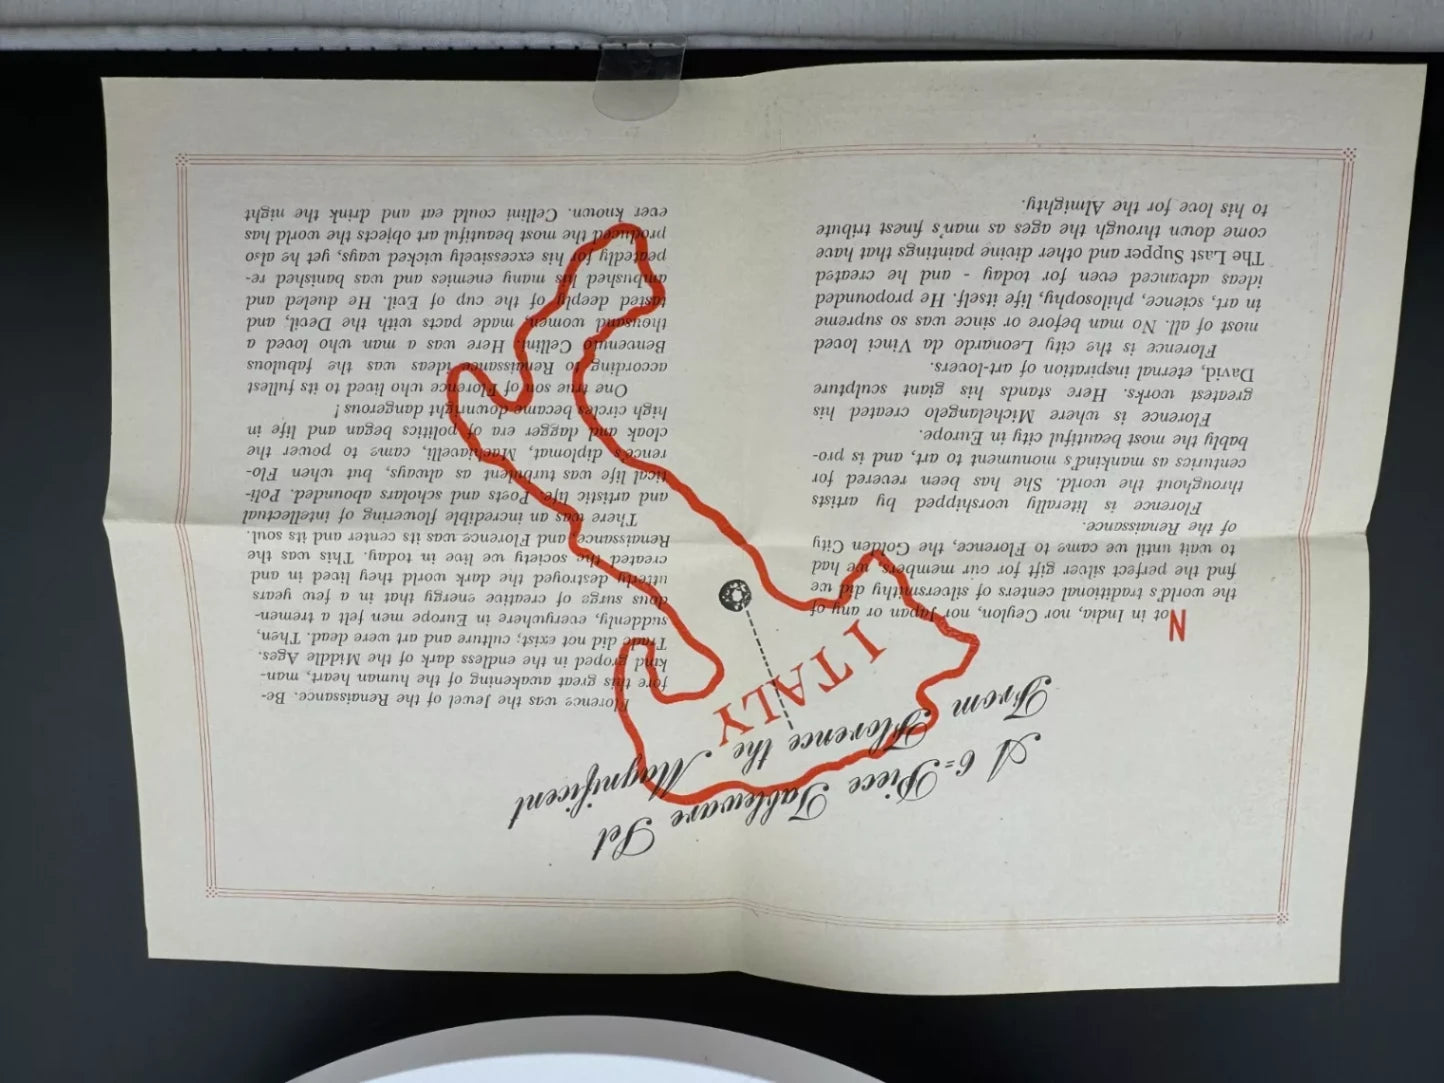 A 6=Piece Tableware Set
From Florence the Magnificent
ITALY
Not in India, nor Ceylon, nor Japan or any of
the world's traditional centers of silversmithy did we
find the perfect silver gift for our members, we had
to wait until we came to Florence, the Golden City
of the Renaissance.
Florence is literally worshipped by artists
throughout the world. She has been revered for
centuries as mankind's monument to art, and is pro-
bably the most beautiful city in Europe.
Florence is where Michelangelo created his
greatest works. Here stands his giant sculpture
David, eternal inspiration of art-lovers.
Florence is the city Leonardo da Vinci loved
most of all. No man before or since was so supreme
in art, science, philosophy, life itself. He propounded
ideas advanced even for today - and he created
The Last Supper and other divine paintings that have
come down through the ages as man's finest tribute
to his love for the Almighty.
Florence was the Jewel of the Renaissance. Be-
fore this great awakening of the human heart, man-
kind groped in the endless dark of the Middle Ages.
Trade did not exist; culture and art were dead. Then,
suddenly, everywhere in Europe men felt a tremen-
dous surge of creative energy that in a few years
utterly destroyed the dark world they lived in and
created the society we live in today. This was the
Renaissance, and Florence was its center and its soul.
There was an incredible flowering of intellectual
and artistic life. Poets and scholars abounded. Poli-
tical life was turbulent as always, but when Flo-
rence's diplomat, Machiavelli, came to power the
cloak and dagger era of politics began and life in
high circles became downright dangerous !
One true son of Florence who lived to its fullest
according to Renaissance ideas was the fabulous
Benvenuto Cellini. Here was a man who loved a
thousand women, made pacts with the Devil, and
tasted deeply of the cup of Evil. He dueled and
ambushed his many enemies and was banished re-
peatedly for his excessively wicked ways, yet he also
produced the most beautiful art objects the world has
ever known. Cellini could eat and drink the night